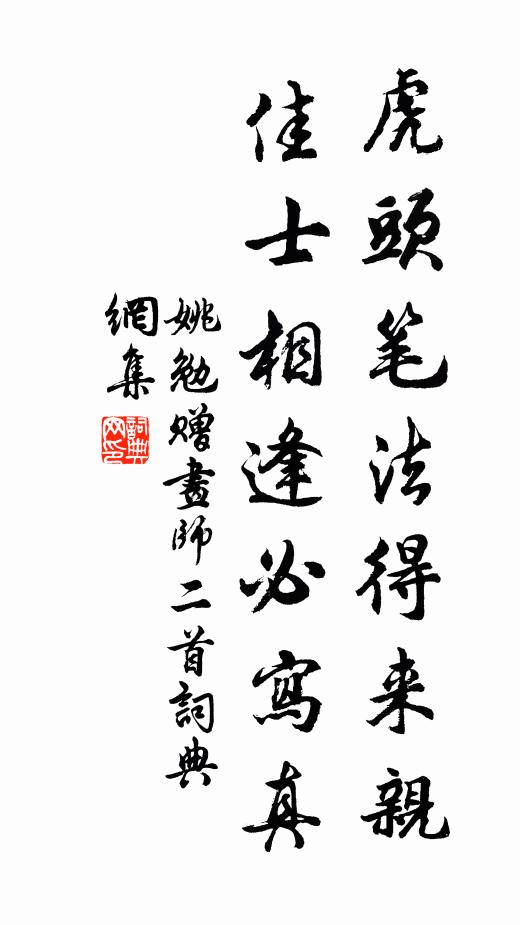 虎頭笔法得来親
佳士相逢必寫真
姚勉赠畫師二首詞典
網集
詞典
网印